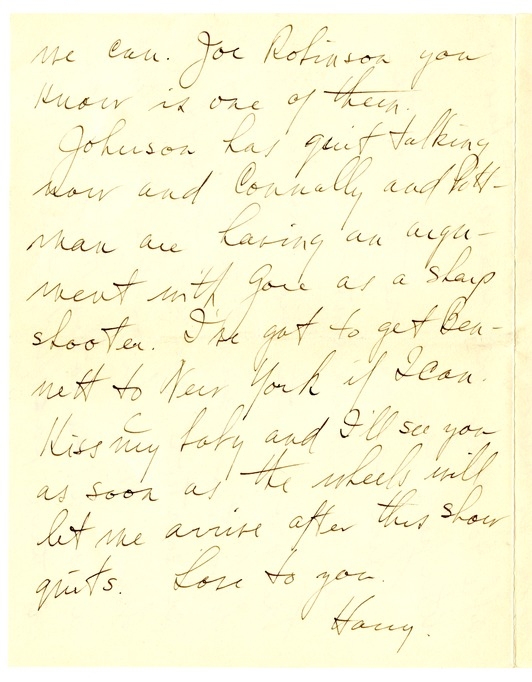 we can. Joe Robinson you
know is one of them.
Johnson has quit talking
now and Connally and Pitt-
man are having an argu-
ment with Gore as a sharp
shooter. I've got to get Ben-
nett to New York if I can.
Kiss my baby and I'll see you
as soon as the wheels will
let me arrive after this show
quits. Love to you.
Harry.